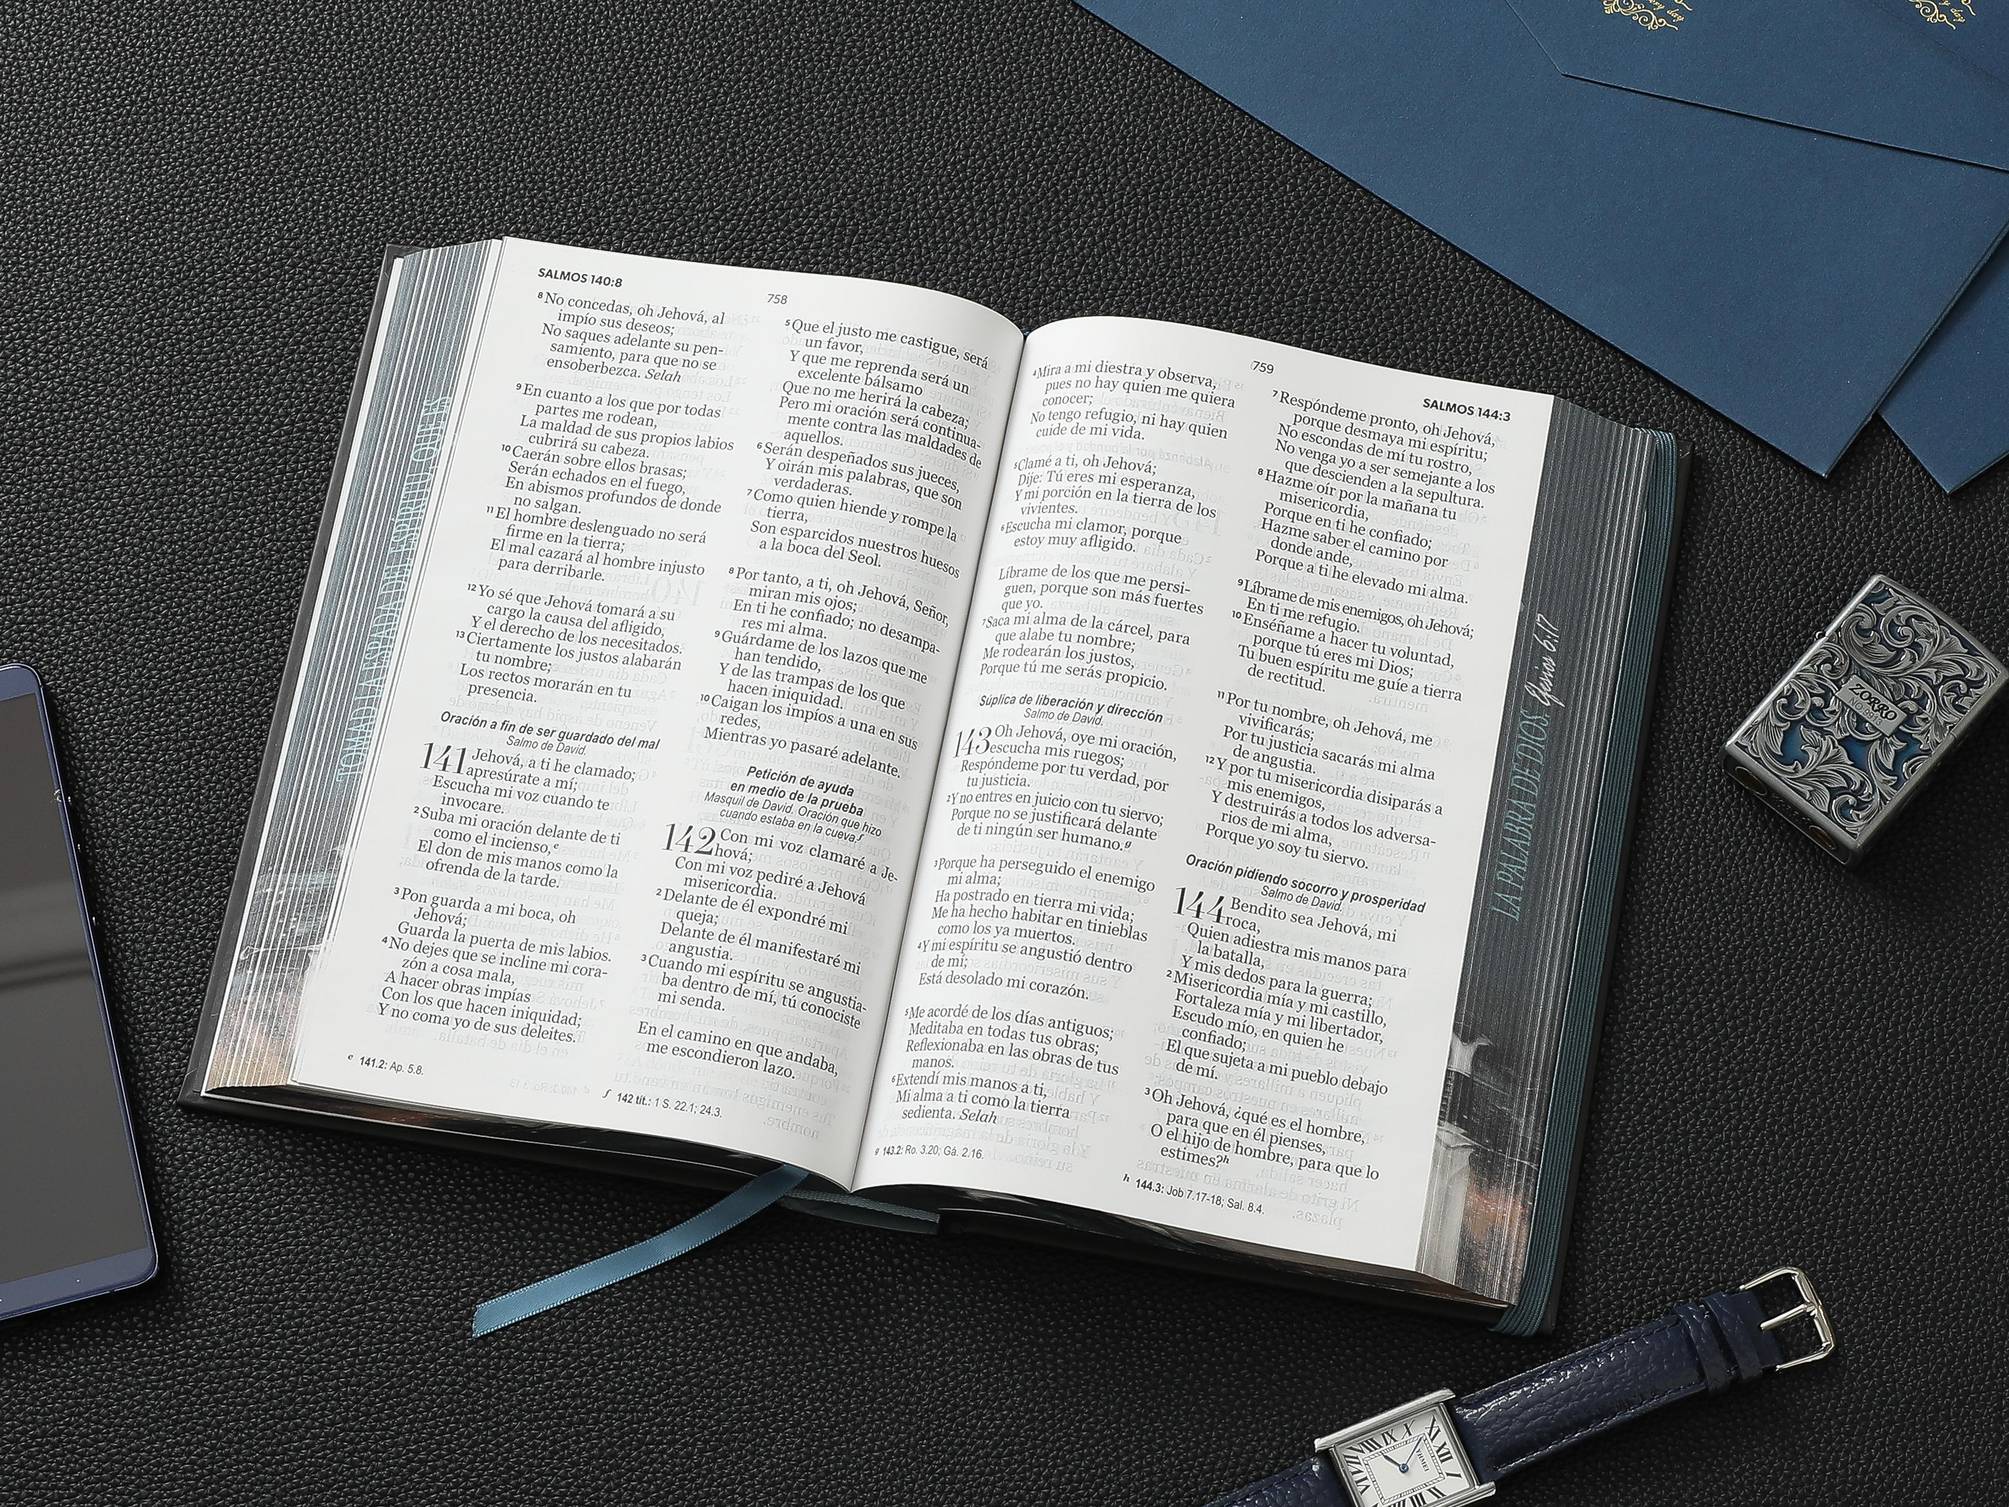 SALMOS 140:8
758
⁸No concedas, oh Jehová, al
impío sus deseos;
No saques adelante su pen-
samiento, para que no se
ensoberbezca. Selah
⁹En cuanto a los que por todas
partes me rodean,
La maldad de sus propios labios
cubrirá su cabeza.
¹⁰Caerán sobre ellos brasas;
Serán echados en el fuego,
En abismos profundos de donde
no salgan.
¹¹El hombre deslenguado no será
firme en la tierra;
El mal cazará al hombre injusto
para derribarle.
¹²Yo sé que Jehová tomará a su
cargo la causa del afligido,
Y el derecho de los necesitados.
¹³Ciertamente los justos alabarán
tu nombre;
Los rectos morarán en tu
presencia.
Oración a fin de ser guardado del mal
Salmo de David.
141 Jehová, a ti he clamado;
apresúrate a mí;
Escucha mi voz cuando te
invocare.
²Suba mi oración delante de ti
como el incienso,ᵉ
El don de mis manos como la
ofrenda de la tarde.
³Pon guarda a mi boca, oh
Jehová;
Guarda la puerta de mis labios.
⁴No dejes que se incline mi cora-
zón a cosa mala,
A hacer obras impías
Con los que hacen iniquidad;
Y no coma yo de sus deleites.
⁵Que el justo me castigue, será
un favor,
Y que me reprenda será un
excelente bálsamo
Que no me herirá la cabeza;
Pero mi oración será continua-
mente contra las maldades de
aquellos.
⁶Serán despeñados sus jueces,
Y oirán mis palabras, que son
verdaderas.
⁷Como quien hiende y rompe la
tierra,
Son esparcidos nuestros huesos
a la boca del Seol.
⁸Por tanto, a ti, oh Jehová, Señor,
miran mis ojos;
En ti he confiado; no desampa-
res mi alma.
⁹Guárdame de los lazos que me
han tendido,
Y de las trampas de los que
hacen iniquidad.
¹⁰Caigan los impíos a una en sus
redes,
Mientras yo pasaré adelante.
Petición de ayuda
en medio de la prueba
Masquil de David. Oración que hizo
cuando estaba en la cueva.ᶠ
142 Con mi voz clamaré a Je-
hová;
Con mi voz pediré a Jehová
misericordia.
²Delante de él expondré mi
queja;
Delante de él manifestaré mi
angustia.
³Cuando mi espíritu se angustia-
ba dentro de mí, tú conociste
mi senda.
En el camino en que andaba,
me escondieron lazo.
ᵉ 141.2: Ap. 5.8.
ᶠ 142 tít.: 1 S. 22.1; 24.3.
759
SALMOS 144:3
⁴Mira a mi diestra y observa,
pues no hay quien me quiera
conocer;
No tengo refugio, ni hay quien
cuide de mi vida.
⁵Clamé a ti, oh Jehová;
Dije: Tú eres mi esperanza,
Y mi porción en la tierra de los
vivientes.
⁶Escucha mi clamor, porque
estoy muy afligido.
Líbrame de los que me persi-
guen, porque son más fuertes
que yo.
⁷Saca mi alma de la cárcel, para
que alabe tu nombre;
Me rodearán los justos,
Porque tú me serás propicio.
Súplica de liberación y dirección
Salmo de David.
143 Oh Jehová, oye mi oración,
escucha mis ruegos;
Respóndeme por tu verdad, por
tu justicia.
²Y no entres en juicio con tu siervo;
Porque no se justificará delante
de ti ningún ser humano.ᵍ
³Porque ha perseguido el enemigo
mi alma;
Ha postrado en tierra mi vida;
Me ha hecho habitar en tinieblas
como los ya muertos.
⁴Y mi espíritu se angustió dentro
de mí;
Está desolado mi corazón.
⁵Me acordé de los días antiguos;
Meditaba en todas tus obras;
Reflexionaba en las obras de tus
manos.
⁶Extendí mis manos a ti,
Mi alma a ti como la tierra
sedienta. Selah
⁷Respóndeme pronto, oh Jehová,
porque desmaya mi espíritu;
No escondas de mí tu rostro,
No venga yo a ser semejante a los
que descienden a la sepultura.
⁸Hazme oír por la mañana tu
misericordia,
Porque en ti he confiado;
Hazme saber el camino por
donde ande,
Porque a ti he elevado mi alma.
⁹Líbrame de mis enemigos, oh Jehová;
En ti me refugio.
¹⁰Enséñame a hacer tu voluntad,
porque tú eres mi Dios;
Tu buen espíritu me guíe a tierra
de rectitud.
¹¹Por tu nombre, oh Jehová, me
vivificarás;
Por tu justicia sacarás mi alma
de angustia.
¹²Y por tu misericordia disiparás a
mis enemigos,
Y destruirás a todos los adversa-
rios de mi alma,
Porque yo soy tu siervo.
Oración pidiendo socorro y prosperidad
Salmo de David.
144 Bendito sea Jehová, mi
roca,
Quien adiestra mis manos para
la batalla,
Y mis dedos para la guerra;
²Misericordia mía y mi castillo,
Fortaleza mía y mi libertador,
Escudo mío, en quien he
confiado;
El que sujeta a mi pueblo debajo
de mí.
³Oh Jehová, ¿qué es el hombre,
para que en él pienses,
O el hijo de hombre, para que lo
estimes?ʰ
ᵍ 143.2: Ro. 3.20; Gá. 2.16.
ʰ 144.3: Job 7.17-18; Sal. 8.4.
TOMAD LA ESPADA DEL ESPÍRITU, QUE ES
LA PALABRA DE DIOS. Efesios 6:17
ZORRO